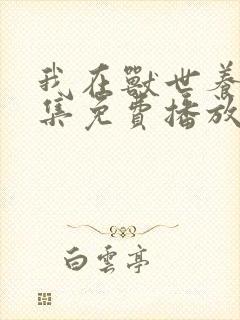 我在獸世養
集免費播放
白雲亭